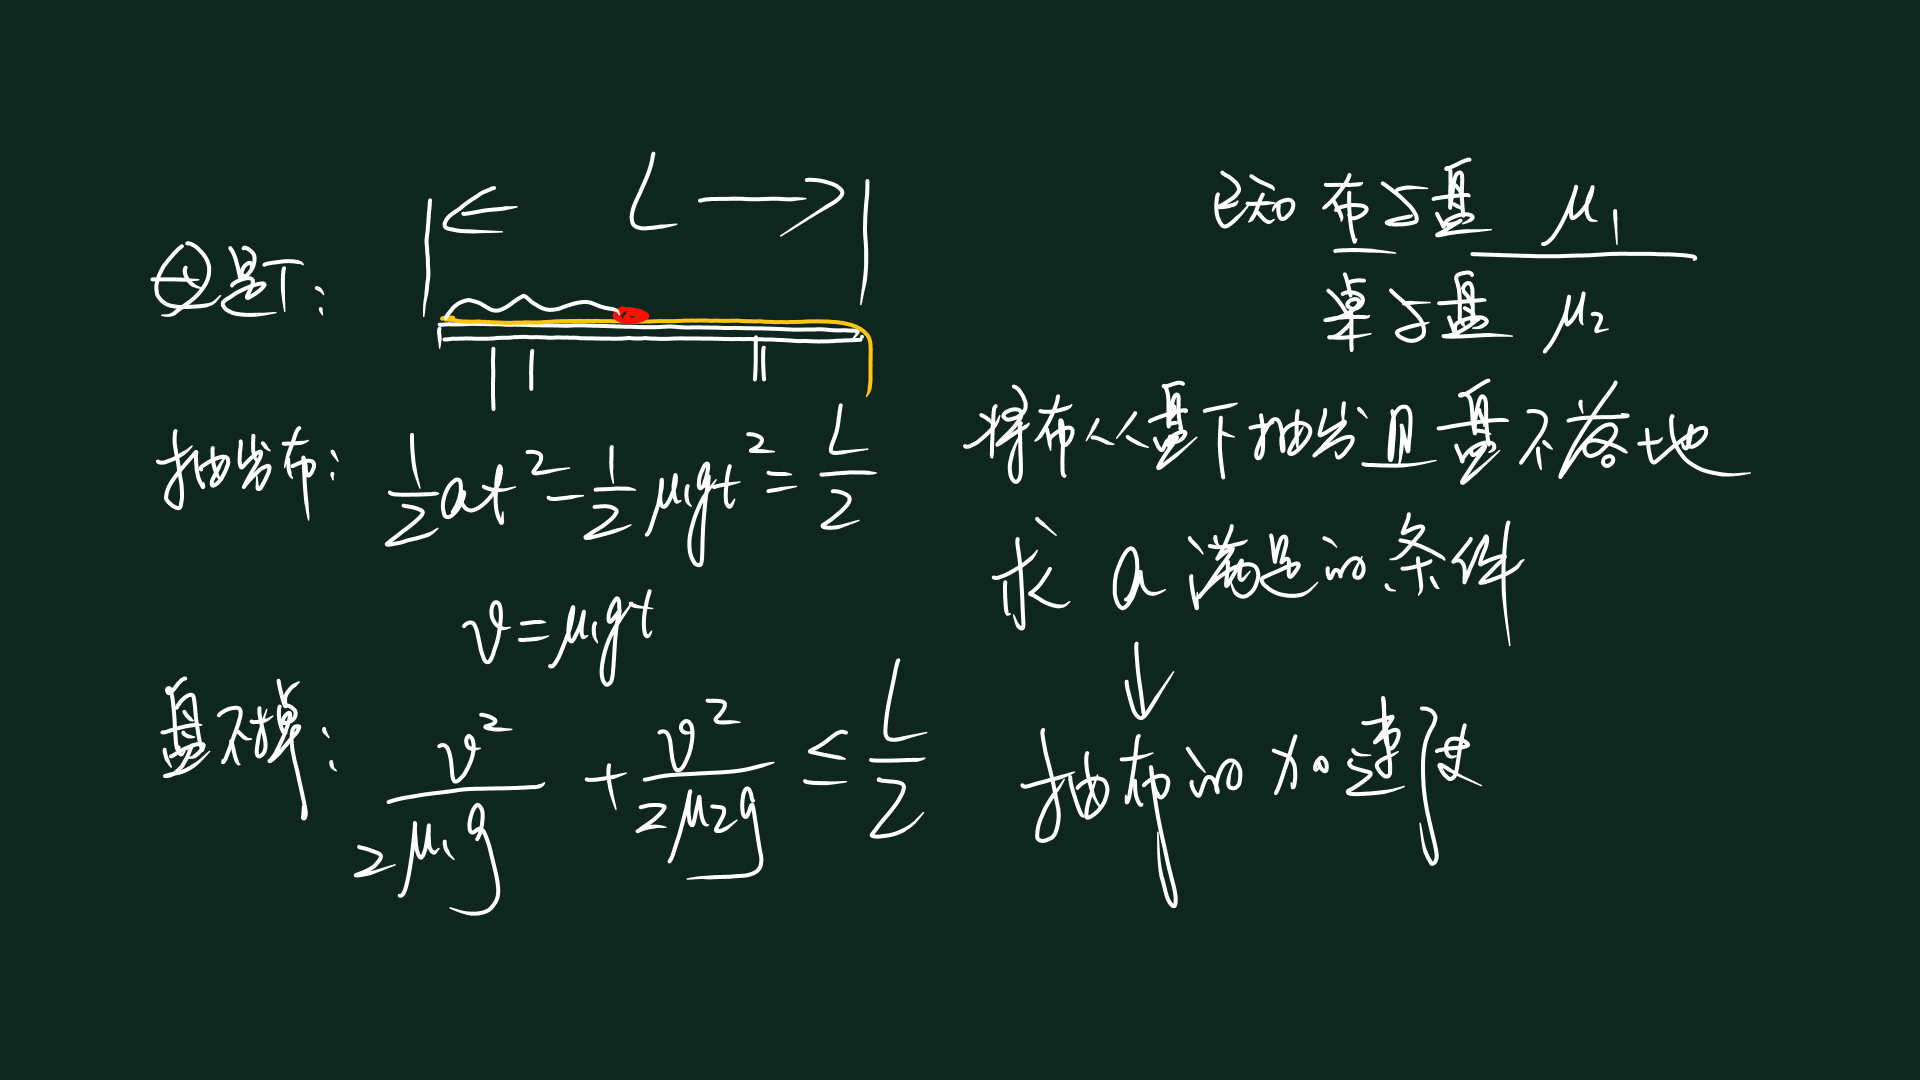 L
母题T:
已知 布与盘 μ₁
桌与盘 μ₂
将布从盘下抽出且盘不落地
求 a 满足的条件
↓
抽布的加速度
抽出布: 1/2 at² - 1/2 μ₁gt² = L/2
v = μ₁gt
盘不掉: v²/2μ₁g + v²/2μ₂g ≤ L/2